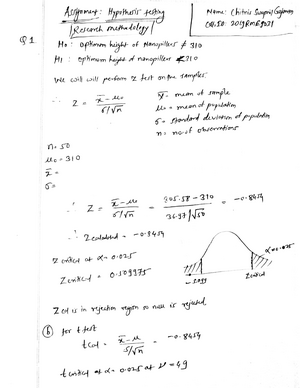 Assignment: Hypothesis testing
[Research methodology]
Name: Chitnis
Q 1
H0: Optimum height of Nanopillers ≠ 310
H1: Optimum height of nanopillers ≠ 310
we will perform Z test on the samples.
∴ Z = x̄ - μ0 / σ/√n
x̄ - mean of sample
μ0 = mean of population
σ = standard deviation of population
n = no. of observations
n = 50
μ0 = 310
x̄ =
σ =
∴ Z = x̄ - μ0 / σ/√n = 305.58 - 310 / 36.97/√50 = -0.8454
∴ Zcalculated = -0.8454
Z critical at α = 0.025
Zcritical = 0.509975
α = 0.025
Zcritical
Zcal is in rejection region so null is rejected
(b) for t test
tcal = x̄ - μ / S/√n = -0.8454
t critical at α = 0.025 at ν = 49